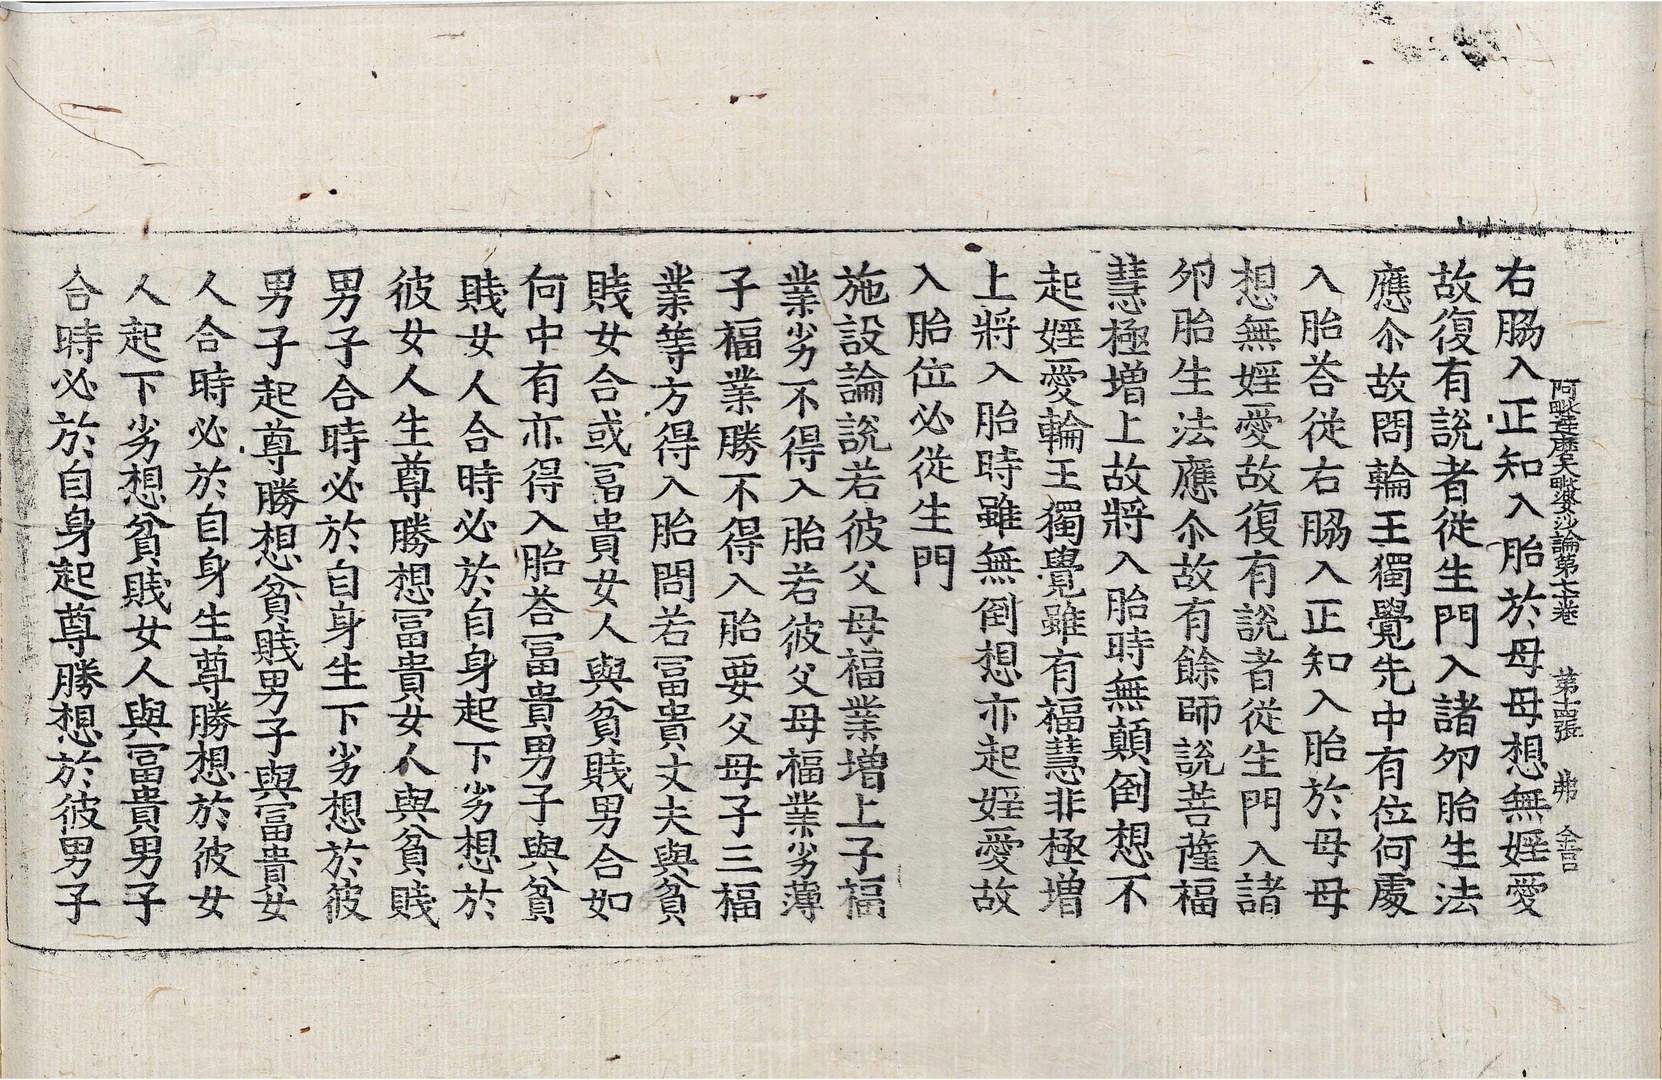 阿毗達磨大毗婆沙論第七十卷 第 張 弗
右脇入正知入胎於母母想無婬愛
故復有說者從生門入諸卵胎生法
應尒故問輪王獨覺先中有位何處
入胎荅從右脇入正知入胎於母母
想無婬愛故復有說者從生門入諸
卵胎生法應尒故有餘師說菩薩福
慧極增上故將入胎時無顛倒想不
起婬愛輪王獨覺雖有福慧非極增
上將入胎時雖無倒想亦起婬愛故
入胎位必從生門
施設論說若彼父母福業增上子福
業劣不得入胎若彼父母福業劣薄
子福業勝不得入胎要父母子三福
業等方得入胎問若冨貴丈夫與貧
賤女合或冨貴女人與貧賤男合如
何中有亦得入胎荅冨貴男子與貧
賤女人合時必於自身起下劣想於
彼女人生尊勝想冨貴女人與貧賤
男子合時必於自身生下劣想於彼
男子起尊勝想貧賤男子與冨貴女
人合時必於自身生尊勝想於彼女
人起下劣想貧賤女人與冨貴男子
合時必於自身起尊勝想於彼男子